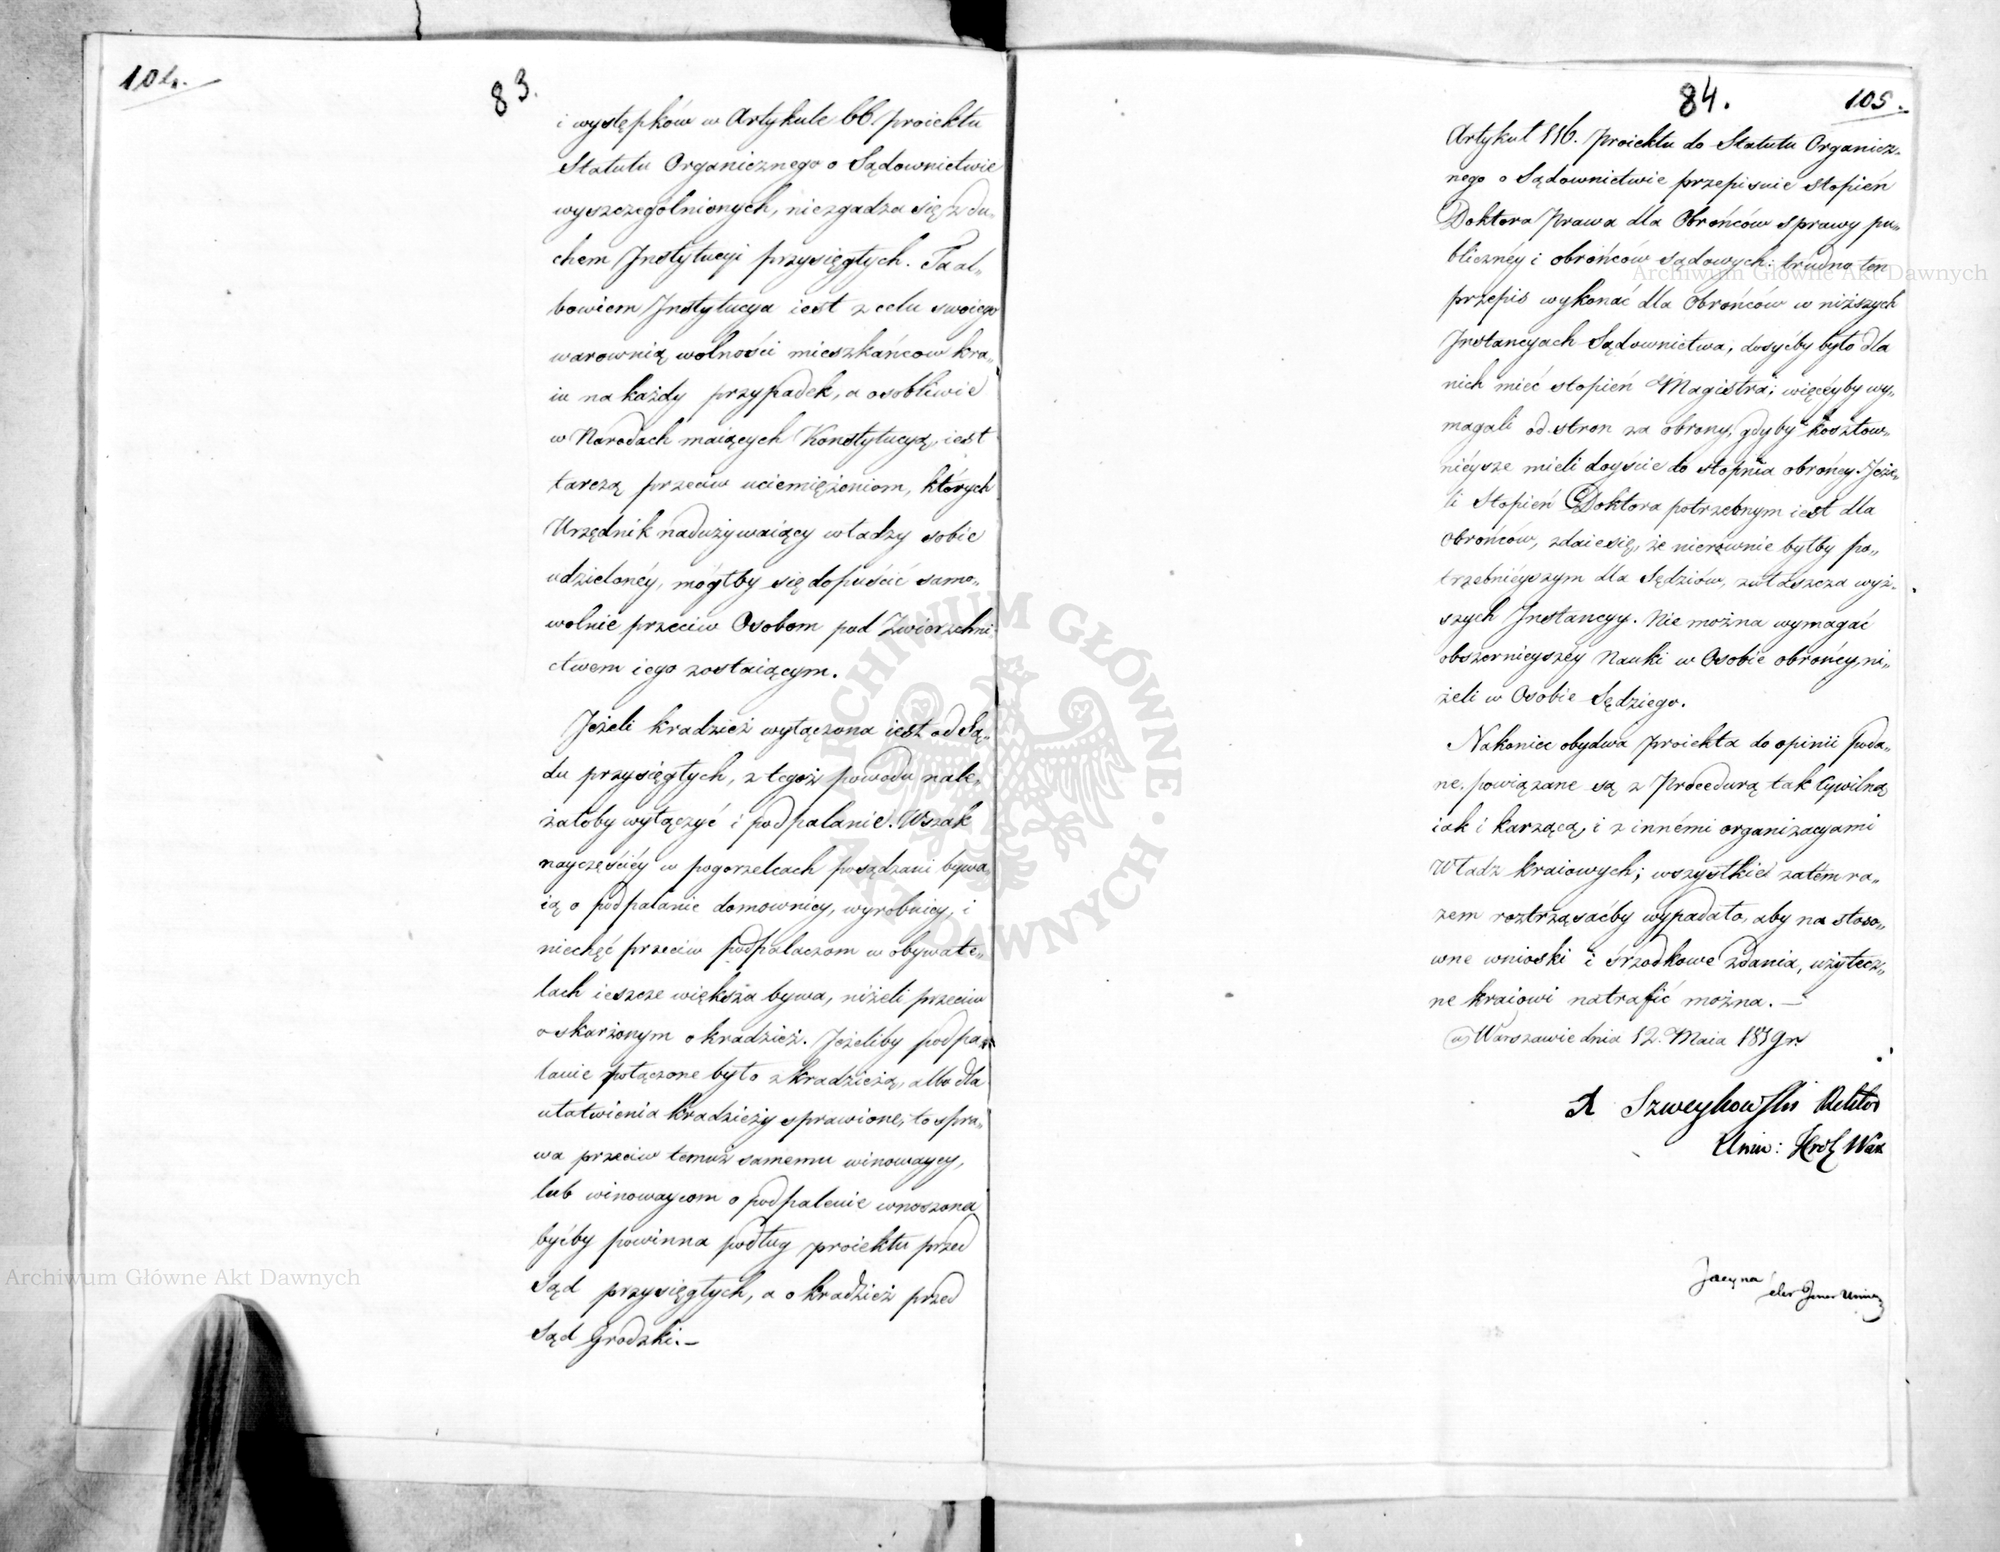 104.
83.
i występków w Artykule 66 Proiektu
Statutu Organicznego o Sądownictwie
wyszczególnionych, niezgadza się z du„
chem Instytucyi przysięgłych. Ta al„
bowiem Instytucya iest z celu swoiego
warownią wolności mieszkańców kra„
iu na każdy przypadek, a osobliwie
w Narodach maiących Konstytucyą, iest
tarczą przeciw uciemiężeniom, których
Urzędnik nadużywaiący władzy sobie
udzielonéy, mógłby się dopuścić samo„
wolnie przeciw Osobom pod Zwierzchni
ctwem iego zostaiącym.
Jeżeli kradzież wyłączona iest od Są„
du przysięgłych, z tegoż powodu nale„
żałoby wyłączyć i podpalanie. Wszak
nayczęściéy w pogorzelcach posądzani bywa„
ią o podpalanie domownicy, wyrobnicy, i
niechęć przeciw podpalaczom w obywate„
lach ieszcze większa bywa, niżeli przeciw
oskarżonym o kradzież. Jeżeliby podpa„
lanie połączone było z kradzieżą, albo dla
ułatwienia kradzieży sprawione, to spra„
wa przeciw temuż samemu winowaycy,
lub winowaycom o podpalenie wnoszona
byćby powinna podług proiektu przed
Sąd przysięgłych, a o kradzież przed
Sąd Grodzki.—
84.
105.
Artykuł 116. Proiektu do Statutu Organicz„
nego o Sądownictwie przepisuie stopień
Doktora Prawa dla Obrońców sprawy pu„
blicznéy i obrońców sądowych: trudno ten
przepis wykonać dla Obrońców w niższych
Instancyach Sądownictwa, dosyćby było dla
nich mieć stopień Magistra; więcéyby wy„
magali od stron za obrony, gdyby kosztow„
niéysze mieli doyście do stopnia obrońcy. Jeże„
li Stopień Doktora potrzebnym iest dla
obrońców, zdaie się, że nierównie byłby po„
trzebnieyszym dla Sędziów, zwłaszcza wyż„
szych Instancyy. Nie można wymagać
obszernieyszéy Nauki w Osobie obrońcy, ni„
żeli w Osobie Sędziego.
Nakoniec obydwa Proiekta do opinii poda„
ne, powiązane są z Procedurą tak Cywilną
iak i karzącą, i z innémi organizacyami
Władz kraiowych; wszystkie zatém ra„
zem roztrząsaćby wypadało, aby na stoso„
wne wnioski i śrzodkowe zdania, użytecz„
ne kraiowi natrafić można. —
w Warszawie dnia 12. Maia 1819 r.
A Szweykowski Rektor
Uniw: Król War
Jacyna
Archiwum Główne Akt Dawnych
Archiwum Główne Akt Dawnych
ARCHIWUM GŁÓWNE • AKT DAWNYCH •